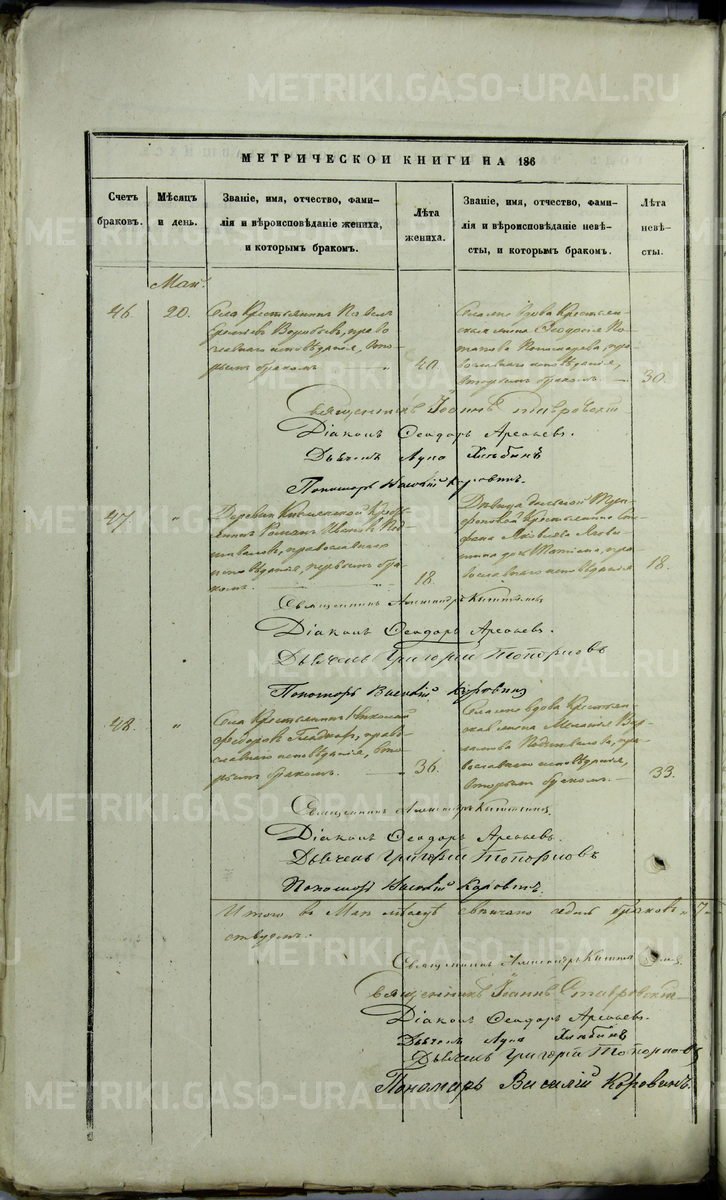 МЕТРИЧЕСКОЙ КНИГИ НА 186
Счетъ браковъ.
Мѣсяцъ и день.
Званіе, имя, отчество, фами-
лія и вѣроисповѣданіе жениха,
и которымъ бракомъ.
Лѣта жениха.
Званіе, имя, отчество, фами-
лія и вѣроисповѣданіе невѣ-
сты, и которымъ бракомъ.
Лѣта невѣ-
сты.
Маія
46. 20.
Села Крестьянинъ Павелъ
Воробьевъ, право
славнаго исповѣданія, вто
рымъ бракомъ
40.
вдова Крестьян
ская жена Ѳеодосія По
тапова Пономарева, пра
вославнаго исповѣданія,
вторымъ бракомъ.
30.
Священникъ Іоаннъ Ставровскій
Діаконъ Ѳеодоръ Арсеньевъ.
Дьячекъ Лука Хлѣбинъ
Пономарь Василій Коровинъ.
47. "
Деревни Крестья
нинъ Романъ Ивановъ Под
шиваловъ, православнаго
исповѣданія, первымъ бра
комъ.
18.
Дѣвица деревни
Крестьянина
Яковлева
дочь Татіана, пра
вославнаго исповѣданія
18.
Священникъ Александръ
Діаконъ Ѳеодоръ Арсеньевъ.
Дьячекъ Григорій Топорковъ
Пономарь Василій Коровинъ
48. "
Села Крестьянинъ Николай
Федоровъ право
славнаго исповѣданія, вто
рымъ бракомъ.
36.
вдова Крестьян
ская жена
Подшивалова, пра
вославнаго исповѣданія,
вторымъ бракомъ.
33.
Священникъ Александръ
Діаконъ Ѳеодоръ Арсеньевъ.
Дьячекъ Григорій Топорковъ
Пономарь Василій Коровинъ.
Итого въ Маѣ мѣсяцѣ свѣнчано седмь браковъ 7
Священникъ Александръ
Священникъ Іоаннъ Ставровскій
Діаконъ Ѳеодоръ Арсеньевъ.
Дьячекъ Лука Хлѣбинъ
Дьячекъ Григорій Топорковъ
Пономарь Василій Коровинъ.
METRIKI.GASO-URAL.RU